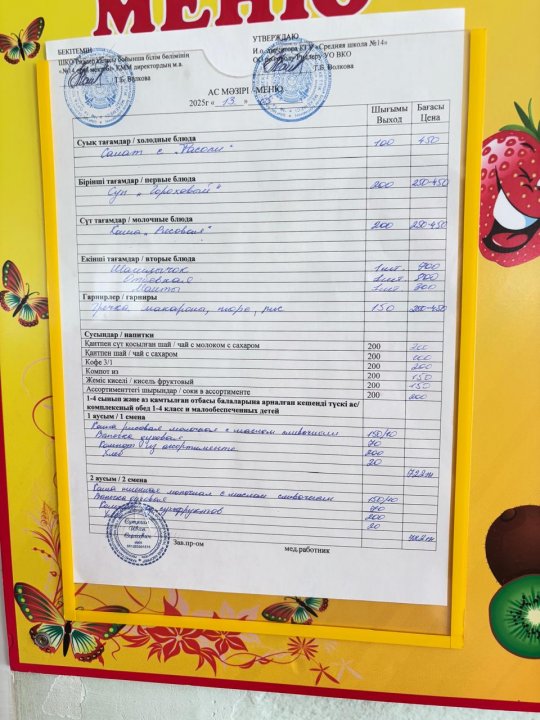 МЕНЮ
БЕКІТЕМІН
ШҚО Риддер қаласы бойынша білім бөлімінің
«№14 орта мектебі» КММ директордың м.а.
Т.Б. Волкова
УТВЕРЖДАЮ
И.о. директора КГУ «Средняя школа №14»
Риддеру УО ВКО
Т.Б. Волкова
АС МӘЗІРІ / МЕНЮ
2025г « 13 »
Шығымы Выход
Бағасы Цена
Суық тағамдар / холодные блюда
Салат с "Фасоли" 100 450
Бірінші тағамдар / первые блюда
Суп "Гороховый" 200 250-450
Сүт тағамдар / молочные блюда
Каша "Рисовая" 200 250-450
Екінші тағамдар / вторые блюда
1 шт.
Отбивная
Манты
Гарнирлер / гарниры
Гречка, макароны, пюре, рис 150
Сусындар / напитки
Қантпен сүт қосылған шай / чай с молоком с сахаром 200
Қантпен шай / чай с сахаром 200
Кофе 3/1 200
Компот из 200 150
Жеміс киселі / кисель фруктовый 200 150
Ассортименттегі шырындар / соки в ассортименте 200 200
1-4 сынып және аз қамтылған отбасы балаларына арналған кешенді түскі ас/
комплексный обед 1-4 класс и малообеспеченных детей
1 ауысым / 1 смена
Каша рисовая молочная с маслом сливочным 150/10
духовая
Компот из ассортимента 200
Хлеб 20
2 ауысым / 2 смена
Каша пшенная молочная с маслом сливочным 150/10
духовая
сухофруктов 200
20
Зав.пр-ом
мед.работник